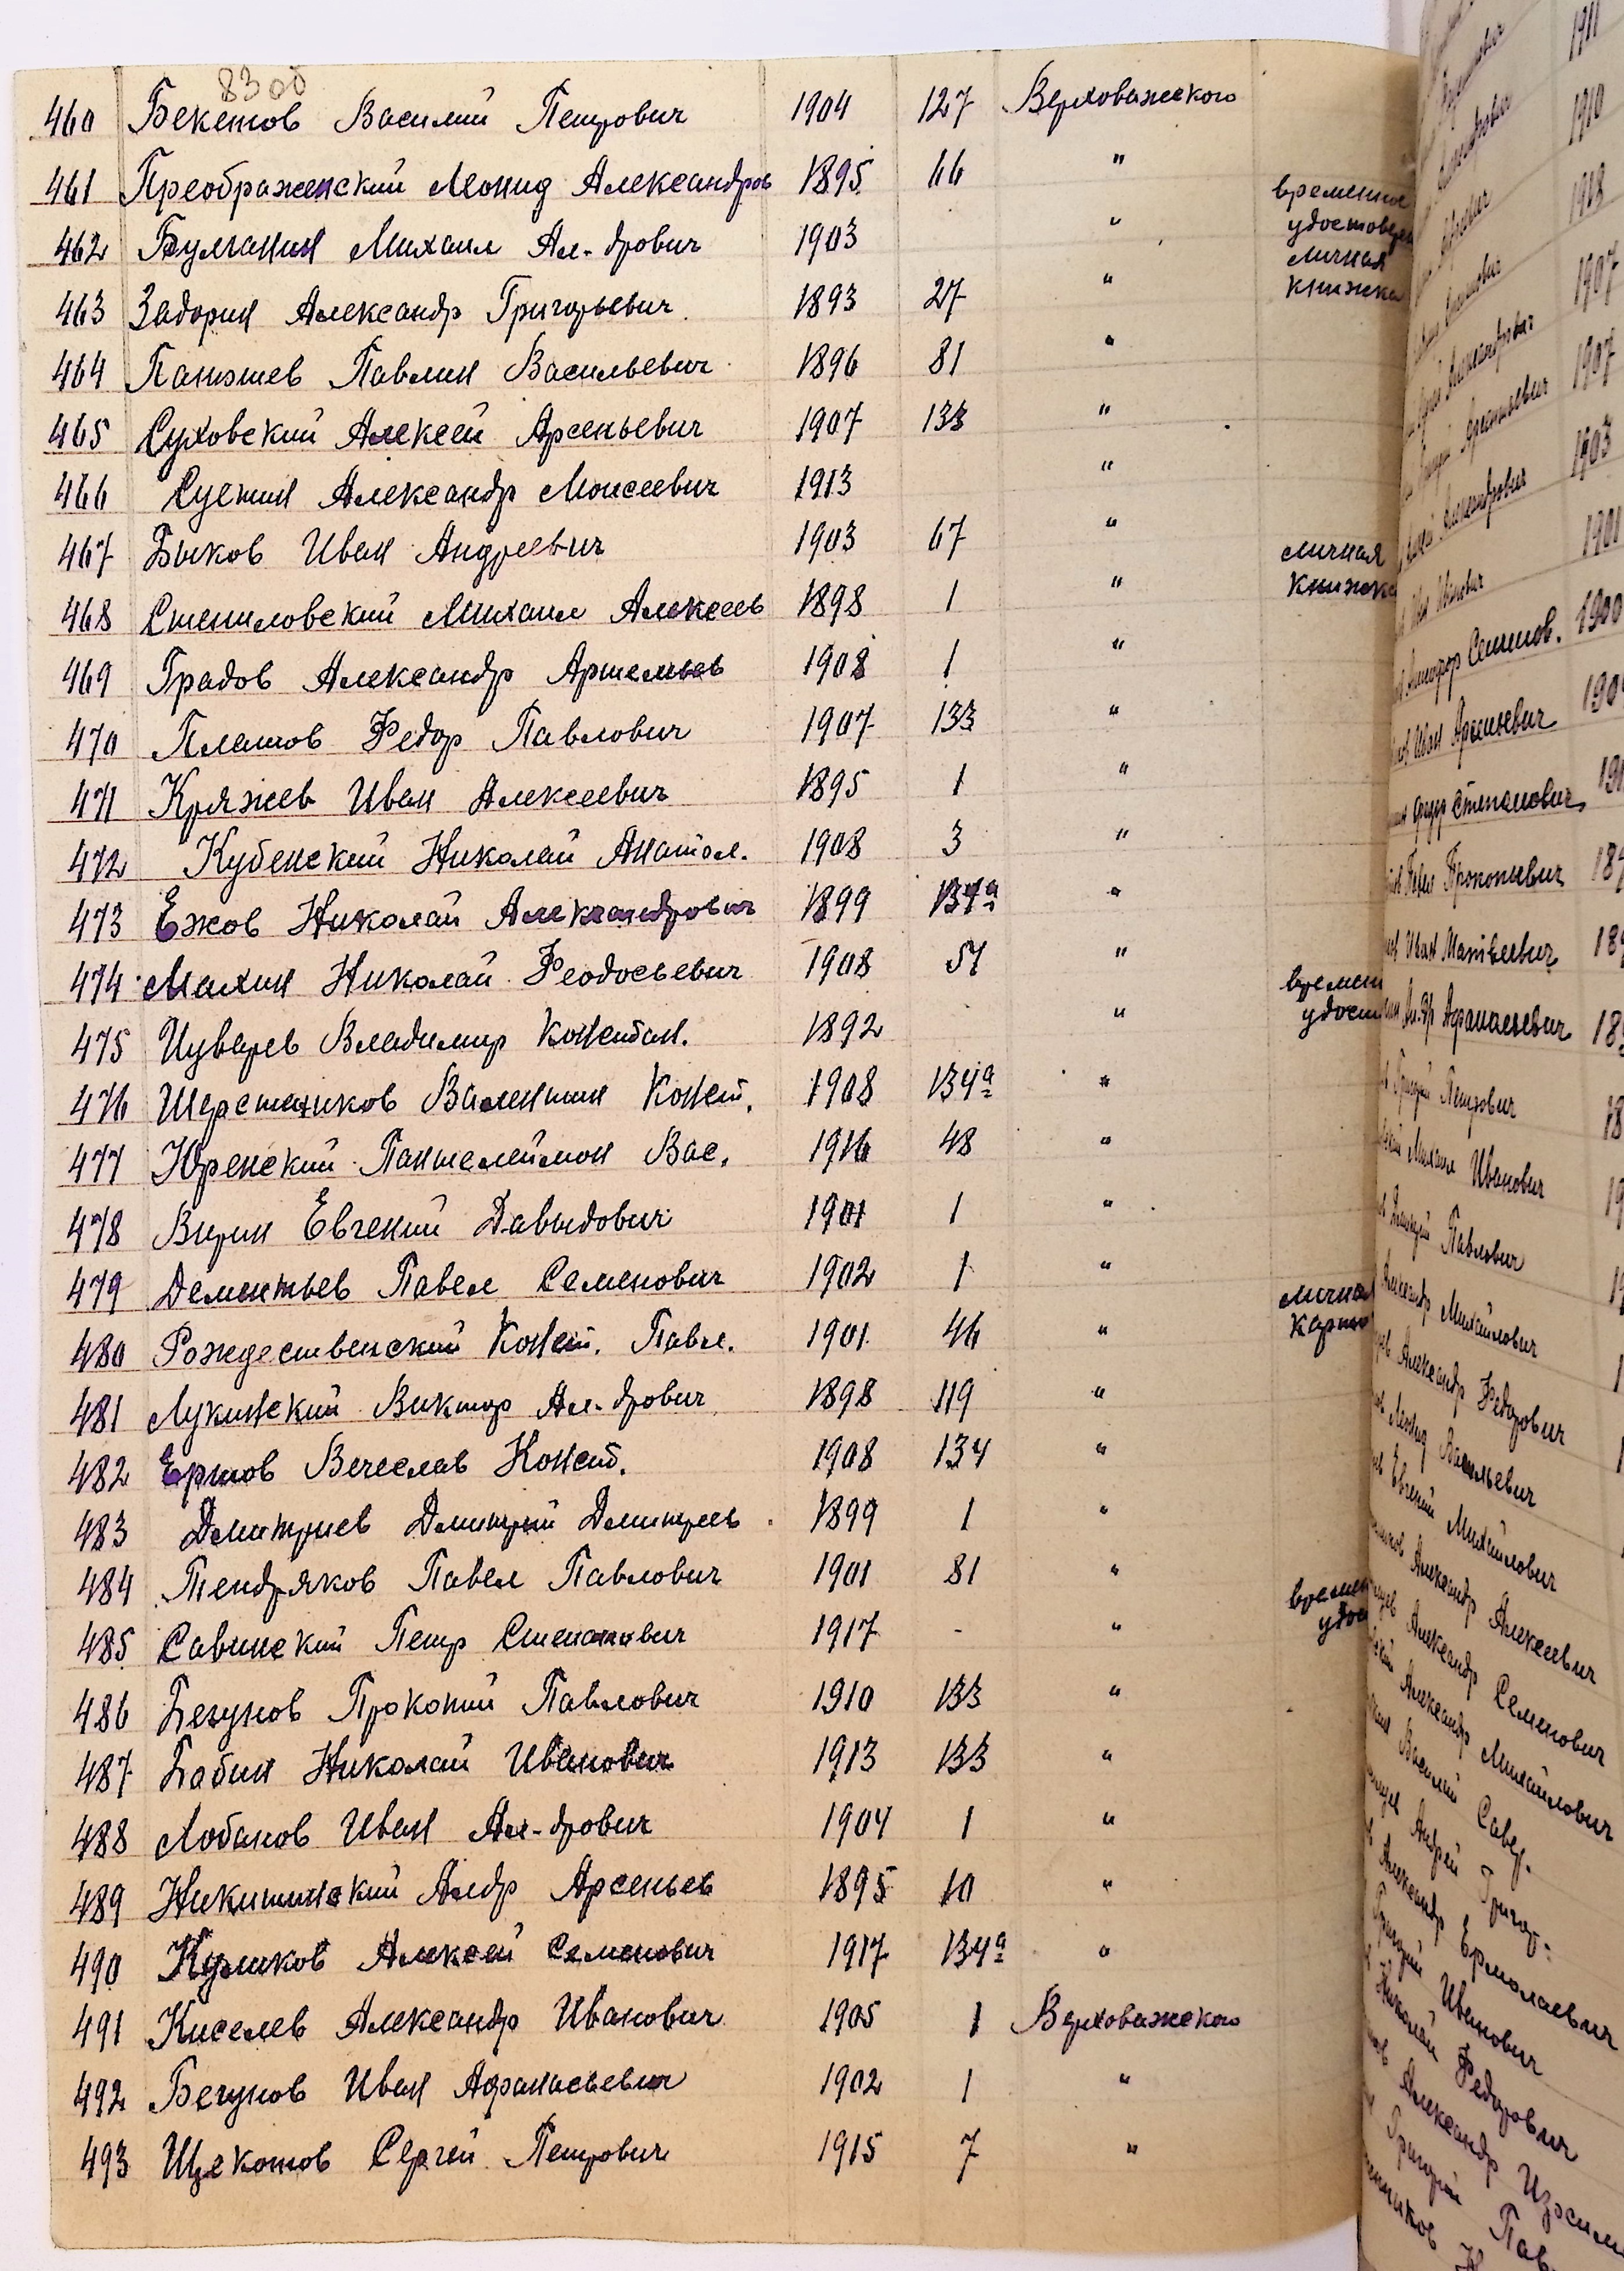 8300
460 Бекетов Василий Петрович 1904 127 Верховажского
461 Преображенский Леонид Александров 1895 66 "
временное
удостовер
462 Булганин Михаил Ал-дрович 1903 "
личная
книжка
463 Задорин Александр Григорьевич 1893 27 "
464 Павлин Васильевич 1896 81 "
465 Суховский Алексей Арсеньевич 1907 133 "
466 Суетин Александр Моисеевич 1913 "
467 Быков Иван Андреевич 1903 67 "
личная
книжка
468 Стениловский Михаил Алексеев 1898 1 "
469 Градов Александр Артемьев 1908 1 "
470 Платов Федор Павлович 1907 133 "
471 Кряжев Иван Алексеевич 1895 1 "
472 Кубенский Николай Анатол. 1908 3 "
473 Ежов Николай Александрович 1899 134а "
474 Махин Николай Феодосьевич 1908 51 "
времен
удост
475 Цуварев Владимир Констан. 1892 "
476 Шерстенников Валентин Конст. 1908 134а "
477 Юренский Пантелеймон Вас. 1916 48 "
478 Вирин Евгений Давыдович 1901 1 "
479 Дементьев Павел Семенович 1902 1 "
личная
карто
480 Рождественский Конст. Павл. 1901 46 "
481 Лукинский Виктор Ал-дрович 1898 119 "
482 Ершов Вечеслав Конст. 1908 134 "
483 Дмитриев Дмитрий Дмитриев 1899 1 "
484 Тендряков Павел Павлович 1901 81 "
времен
удос
485 Савинский Петр Степанович 1917 - "
486 Безунов Прокопий Павлович 1910 133 "
487 Бабин Николай Иванович 1913 133 "
488 Лобанов Иван Ал-дрович 1904 1 "
489 Никитинский Алдр Арсеньев 1895 10 "
490 Куликов Алексей Семенович 1917 134а "
491 Киселев Александр Иванович 1905 1 Верховажского
492 Бегунов Иван Афанасьевич 1902 1 "
493 Щекотов Сергей Петрович 1915 7 "
1911
1910
1908
1907
1907
1903
1901
Семенов. 1900
Иван Арсеньевич
Федор Степанович
Прокопьевич
Иван Матвеевич
Афанасьевич
Григорий Петрович
Михаил Иванович
Дмитрий Павлович
Александр Михайлович
Александр Федорович
Леонид Васильевич
Евгений Михайлович
Александр Алексеевич
Александр Семенович
Александр Михайлович
Василий Савер.
Андрей Григор.
Александр Ермолаевич
Григорий Иванович
Николай Федорович
Александр
Григорий